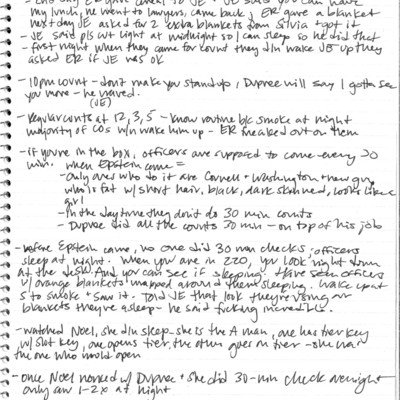 my lunch, he went to lawyers, came back, ER gave a blanket
next day JE asked for 2 extra blankets from Silvia + got it
- JE said pls cut light at midnight so I can sleep so he did that
- first night when they came for count they didn wake JE up they
asked ER if JE was ok
- 10pm count - don't make you stand up, Dupree will say I gotta see
you move - he moved.
(JE)
- Regular counts at 12, 3, 5 - know routine b/c smoke at night
majority of COs w/n wake him up - ER freaked out on them
- if you're in the box, officers are supposed to come every 30
min. when Epstein came =
- Only ones who do it are Cornell + Washington + new guy
who is fat w/ short hair, black, dark skinned, looks like a
girl
- In the daytime they don't do 30 min counts
- Dupree did all the counts 30 min - on top of his job
- before Epstein came, no one did 30 min checks, officers
sleep at night. When you are in 220, you look right down
at the desk. And you can see if sleeping. Have seen officers
w/ orange blankets wrapped around them sleeping. wake up at
5 to smoke + saw it. Told JE that look they're using our
blankets they're asleep - he said fucking incredible.
- watched Noel, she din sleep - she is the A man, one has tier key
w/ slot key, one opens tier, the other goes on tier - she was
the one who would open
- once Noel worked w/ Dupree + she did 30-min check overnight
only saw 1-2x at night